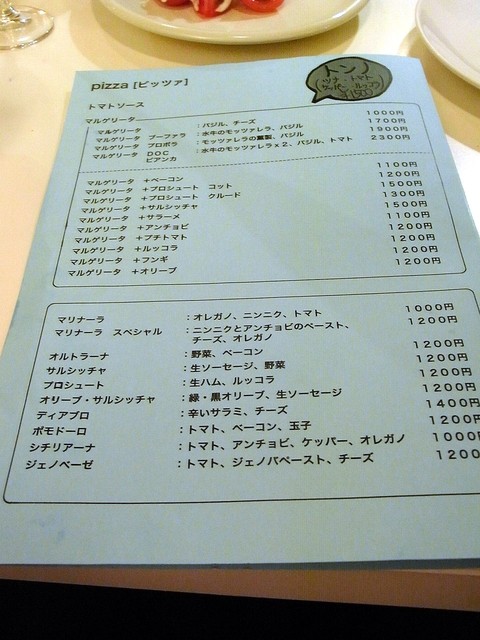 pizza [ピッツァ]
トンノ
ツナ・トマト
ケッパー・ルッコラ
¥1500
トマトソース
マルゲリータ
マルゲリータ ：バジル、チーズ 1000円
マルゲリータ ブーファラ ：水牛のモッツァレラ、バジル 1700円
マルゲリータ プロボラ ：モッツァレラの薫製、バジル 1900円
マルゲリータ DOC ：水牛のモッツァレラx2、バジル、トマト 2300円
ビアンカ
マルゲリータ ＋ベーコン 1100円
マルゲリータ ＋プロシュート コット 1200円
マルゲリータ ＋プロシュート クルード 1500円
マルゲリータ ＋サルシッチャ 1300円
マルゲリータ ＋サラーメ 1500円
マルゲリータ ＋アンチョビ 1100円
マルゲリータ ＋プチトマト 1200円
マルゲリータ ＋ルッコラ 1200円
マルゲリータ ＋フンギ 1200円
マルゲリータ ＋オリーブ 1200円
マリナーラ ：オレガノ、ニンニク、トマト 1000円
マリナーラ スペシャル ：ニンニクとアンチョビのペースト、 1200円
チーズ、オレガノ
オルトラーナ ：野菜、ベーコン 1200円
サルシッチャ ：生ソーセージ、野菜 1200円
プロシュート ：生ハム、ルッコラ 1200円
オリーブ・サルシッチャ ：緑・黒オリーブ、生ソーセージ 1200円
ディアブロ ：辛いサラミ、チーズ 1400円
ポモドーロ ：トマト、ベーコン、玉子 1200円
シチリアーナ ：トマト、アンチョビ、ケッパー、オレガノ 1000円
ジェノベーゼ ：トマト、ジェノバペースト、チーズ 1200